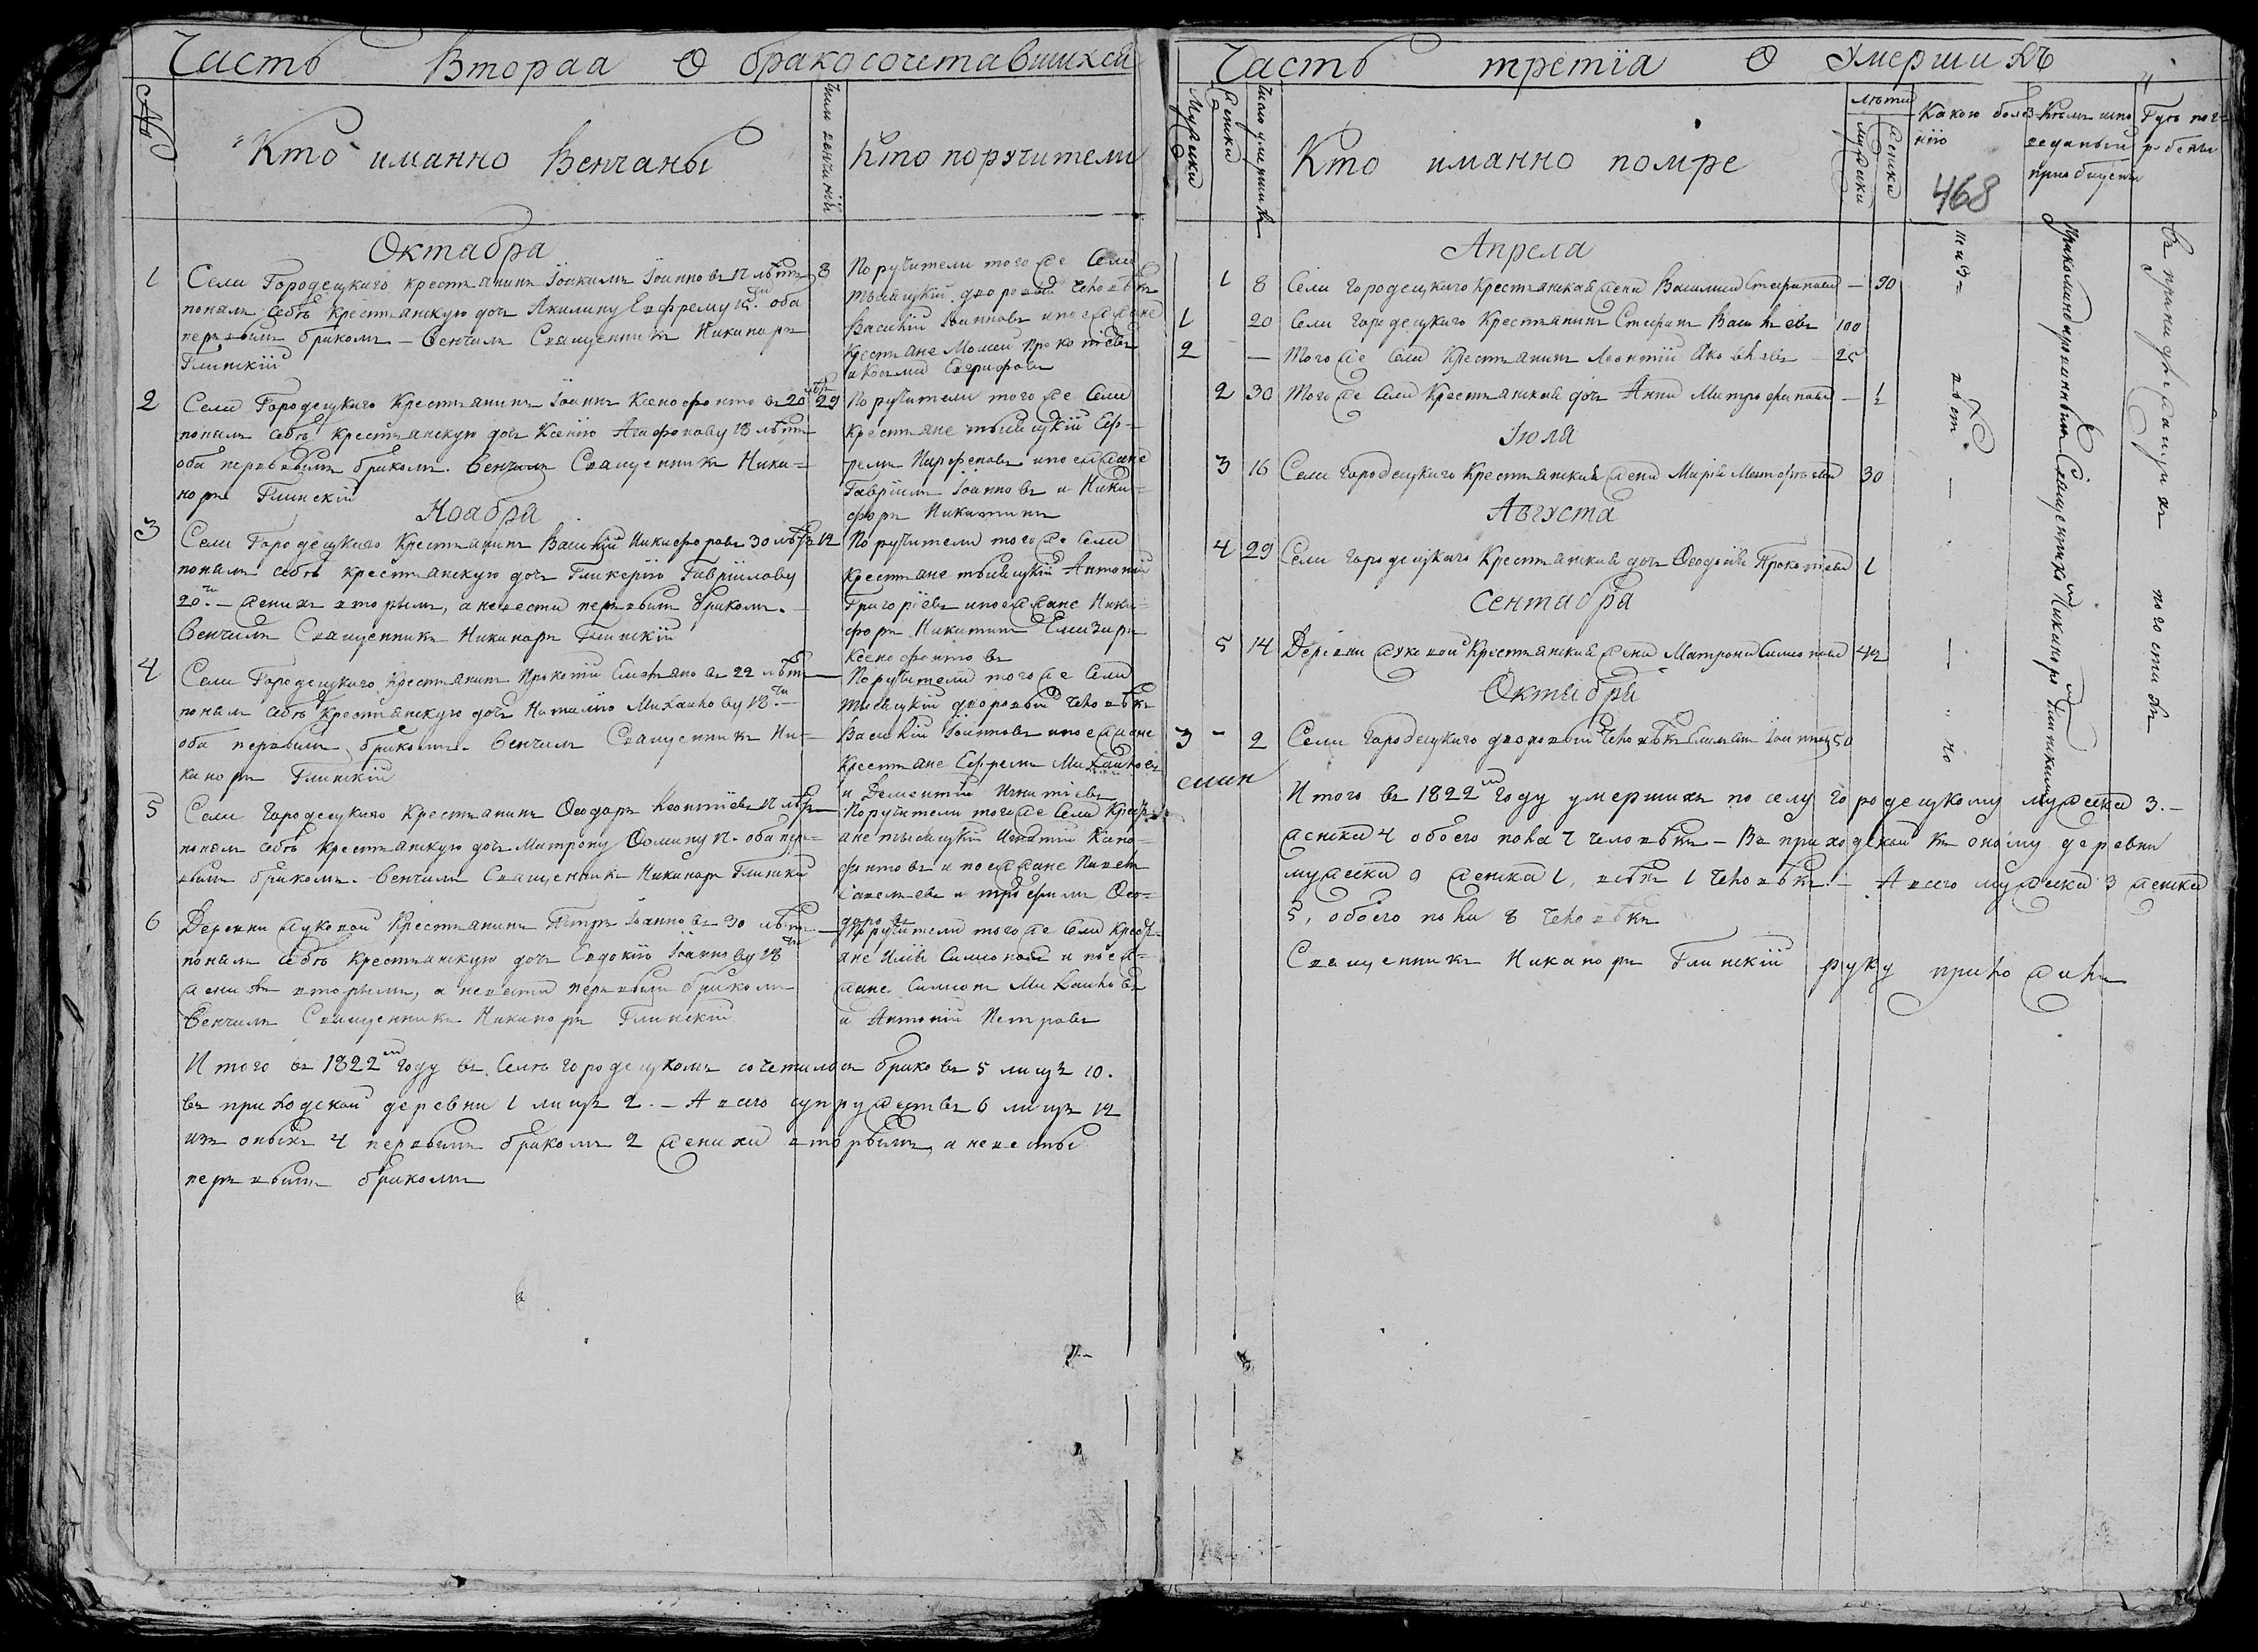 Часть Вторая О бракосочетавшихся
№
Кто имянно Венчаны
Кто поручители
Октября
1
Села Городецкаго крестьянинъ Іоакимъ Іоанновъ 17 лѣтъ
понялъ себѣ крестьянскую дочь Акилину Ефремову оба
первымъ бракомъ – Венчалъ Священникъ Никаноръ
Глинскій
8
Поручители того же Села
тысяцкій дворовый человѣкъ
Василій Іоанновъ и поезжане
Крестьяне Моисей Прокопіевъ
и Косьма
2
Села Городецкаго Крестьянинъ Іоаннъ Ксенофонтовъ 20
понялъ себѣ крестьянскую дочь Ксенію Агафонову 18 лѣтъ
оба первымъ бракомъ. Венчалъ Священникъ Ника=
норъ Глинскій
29
Поручители того же Села
Крестьяне тысяцкій Еф=
ремъ Парфеновъ и поезжане
Гавріилъ Іоанновъ и Ники=
форъ Никитинъ
Ноября
3
Села Городецкаго Крестьянинъ Василій Никифоровъ 30 лѣтъ
понялъ себѣ крестьянскую дочь Гликерію Гавріилову
20. – жених вторымъ, а невеста первымъ бракомъ. –
Венчалъ Священникъ Никаноръ Глинскій
12
Поручители того же Села
Крестьяне тысяцкій Антоній
Григоріевъ и поезжане Ники=
форъ Никитинъ Елизаръ
Ксенофонтовъ
4
Села Городецкаго Крестьянинъ Прокопій 22 лѣтъ
понялъ себѣ Крестьянскую дочь Наталію Михаилову 18. –
оба первымъ бракомъ. Венчалъ Священникъ Ни=
каноръ Глинскій
Поручители того же Села
тысяцкій дворовый человѣкъ
Василій Іоанновъ и поезжане
Крестьяне Ефремъ Михайловъ
и Дементій Игнатіевъ
5
Села Городецкаго Крестьянинъ Феодоръ Леонтіевъ 17 лѣтъ
понялъ себѣ крестьянскую дочь Матрону Фомину 17. оба пер=
вымъ бракомъ. Венчалъ Священникъ Никаноръ Глинскій
Поручители того же Села Кресть=
яне тысяцкій Игнатій Ксено=
фонтовъ и поезжане
Савельевъ и Трофимъ Фео=
доровъ
6
Деревни Жуковой Крестьянинъ Петръ Іоанновъ 30 лѣтъ
понялъ себѣ крестьянскую дочь Евдокію Іоаннову 18
женихъ вторымъ, а невеста первымъ бракомъ
Венчалъ Священникъ Никаноръ Глинскій
Поручители того же Села Кресть=
яне Илія Симоновъ и поез=
жане Симеонъ Михайловъ
и Антоній Петровъ
Итого въ 1822 году въ Селѣ Городецкомъ сочеталось браковъ 5 лицъ 10.
въ приходской деревни 1 лицъ 2. – А всего супружествъ 6 лицъ 12
изъ оныхъ 4 первымъ бракомъ 2 жениха вторымъ, а невесты
первымъ бракомъ
Часть третія О Умершихъ
Мужеска
Женска
Число умершихъ
Кто имянно помре
лѣта
мужска
женска
Какою болез=
нію
468
Кѣмъ испо
веданы и
приобщены
Гдѣ пог=
ребены
Апреля
1 8 Села Городецкаго Крестьянская жена Василиса Стефанова – 90
1 20 Села Городецкаго Крестьянинъ Стефанъ Васильевъ 100
2 — Того же Села Крестьянинъ Леонтій Яковлевъ – 25
2 30 Того же Села Крестьянская дочь Анна Митрофанова –
Іюля
3 16 Села Городецкаго Крестьянская жена Марія Матфѣева 30
Августа
4 29 Села Городецкаго Крестьянская дочь Феодосія Прокопіева 1
Сентября
5 14 Деревни Жуковой Крестьянская жена Матрона Симонова 42
Октября
3 – 2 Села Городецкаго дворовый человѣкъ 50
неиз=
вѣст
но
Прикомандированнымъ Священникомъ Никаноромъ Глинскимъ
въ принадлежащихъ погостахъ
Итого въ 1822 году умершихъ по селу Городецкому мужеска 3. –
женска 4 обоего пола 7 человѣкъ – Въ приходской къ оному деревни
мужеска 0 женска 1, 1 человѣкъ. – А всего мужеска 3 женска
5, обоего пола 8 человѣкъ
Священникъ Никаноръ Глинскій руку приложилъ